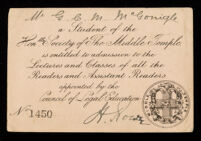 Mr G. C. M. McGonigle
a Student of the
Hon.ble Society of The Middle Temple,
is entitled to admission to the
Lectures and Classes of all the
Readers and Assistant Readers
appointed by the
Council of Legal Education
No 1450